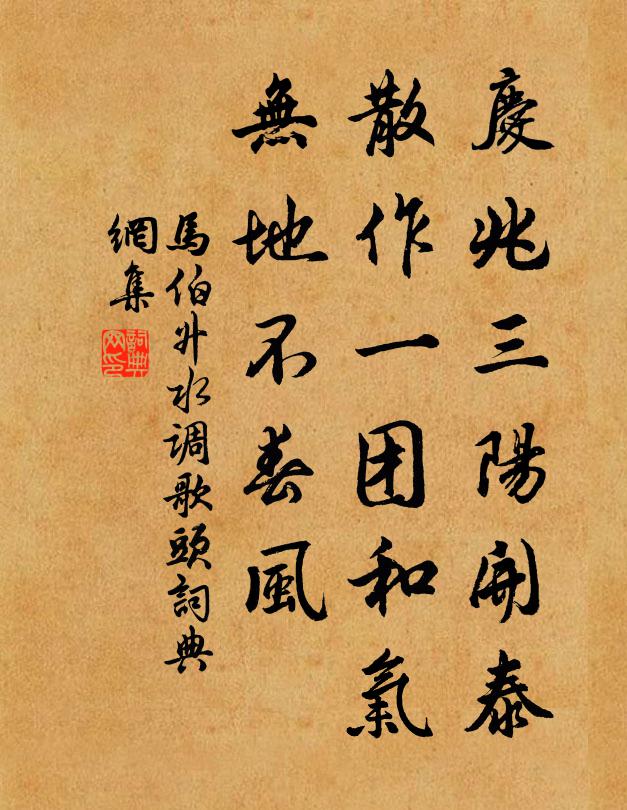 慶兆三陽開泰
散作一团和氣
無地不春風
馬伯升水调歌頭詞典
網集
詞典
网印